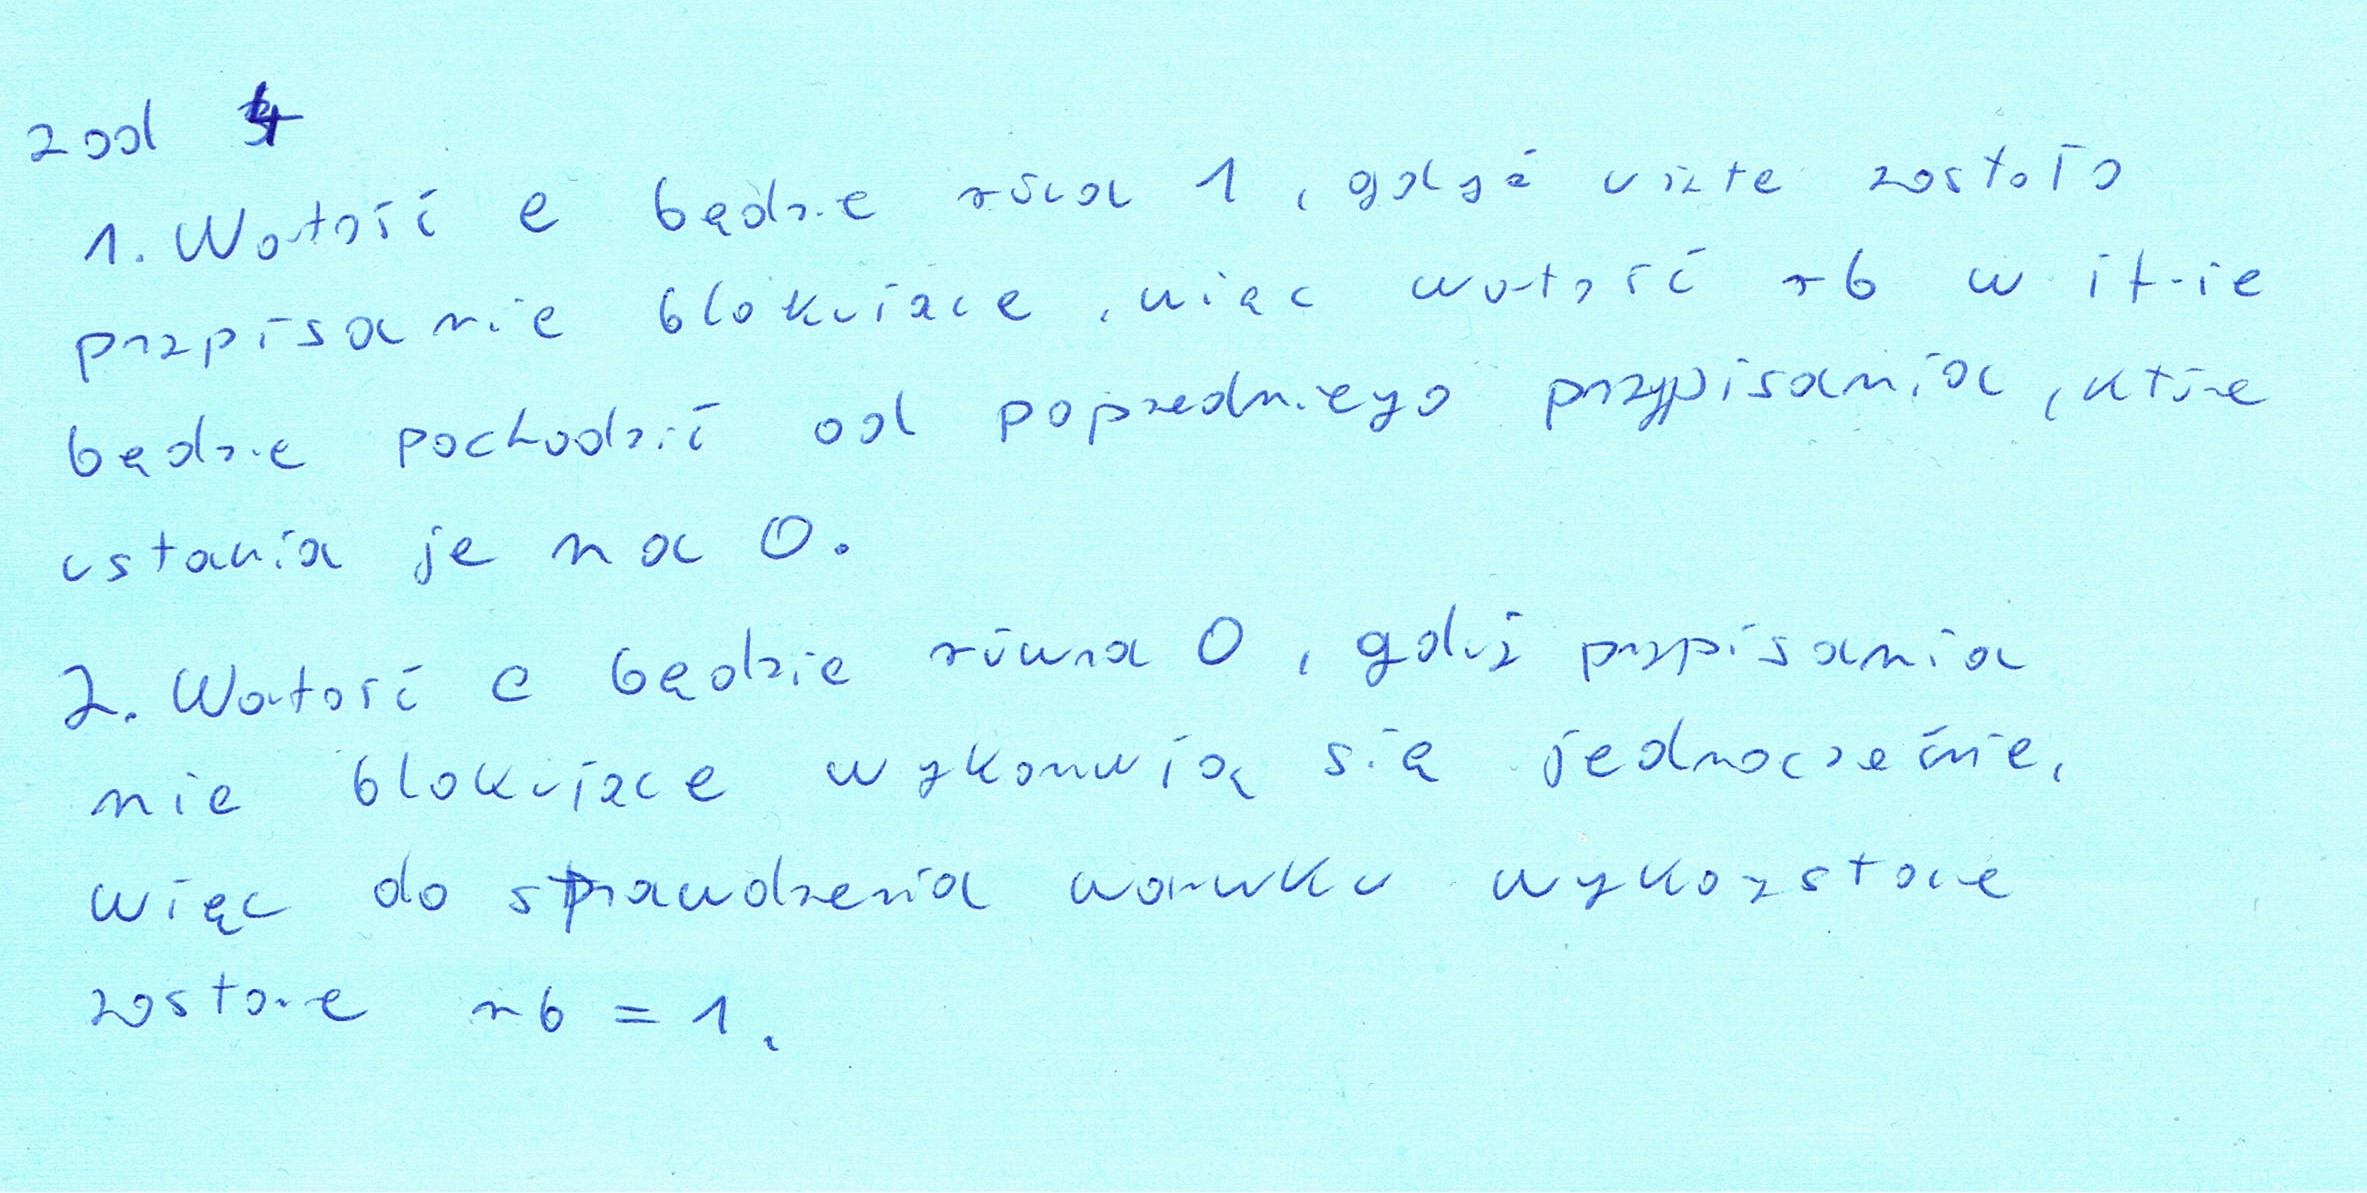 zad 4
1. Wartość e będzie równa 1, gdyż użyte zostało
przypisanie blokujące, więc wartość rb w if-ie
będzie pochodzić od poprzedniego przypisania, które
ustawia je na 0.
2. Wartość e będzie równa 0, gdyż przypisania
nie blokujące wykonują się jednocześnie,
więc do sprawdzenia warunku wykorzystane
zostanie rb = 1.